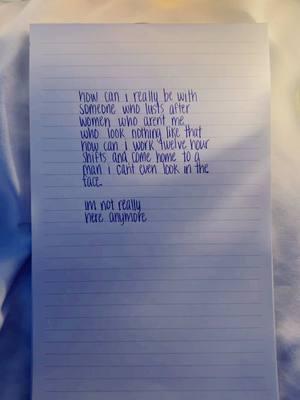 how can i really be with
someone who lusts after
women who arent me
who look nothing like that
how can i work twelve hour
shifts and come home to a
man i cant even look in the
face.
im not really
here anymore